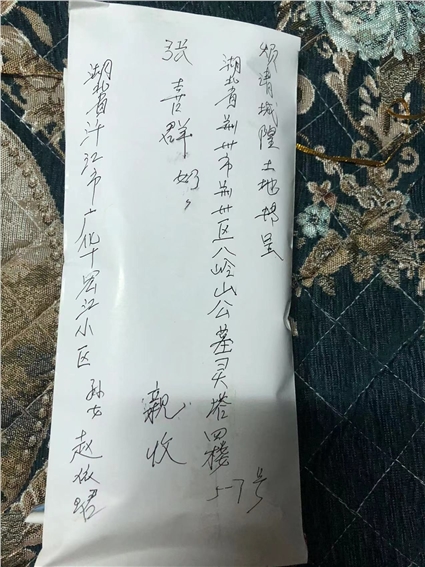 烦请城隍土地转呈
湖北省荆州市荆州区八岭山公墓灵塔四楼5-7号
张喜群奶々 親收
湖北省汗江市广化十江小区 孙女 赵依